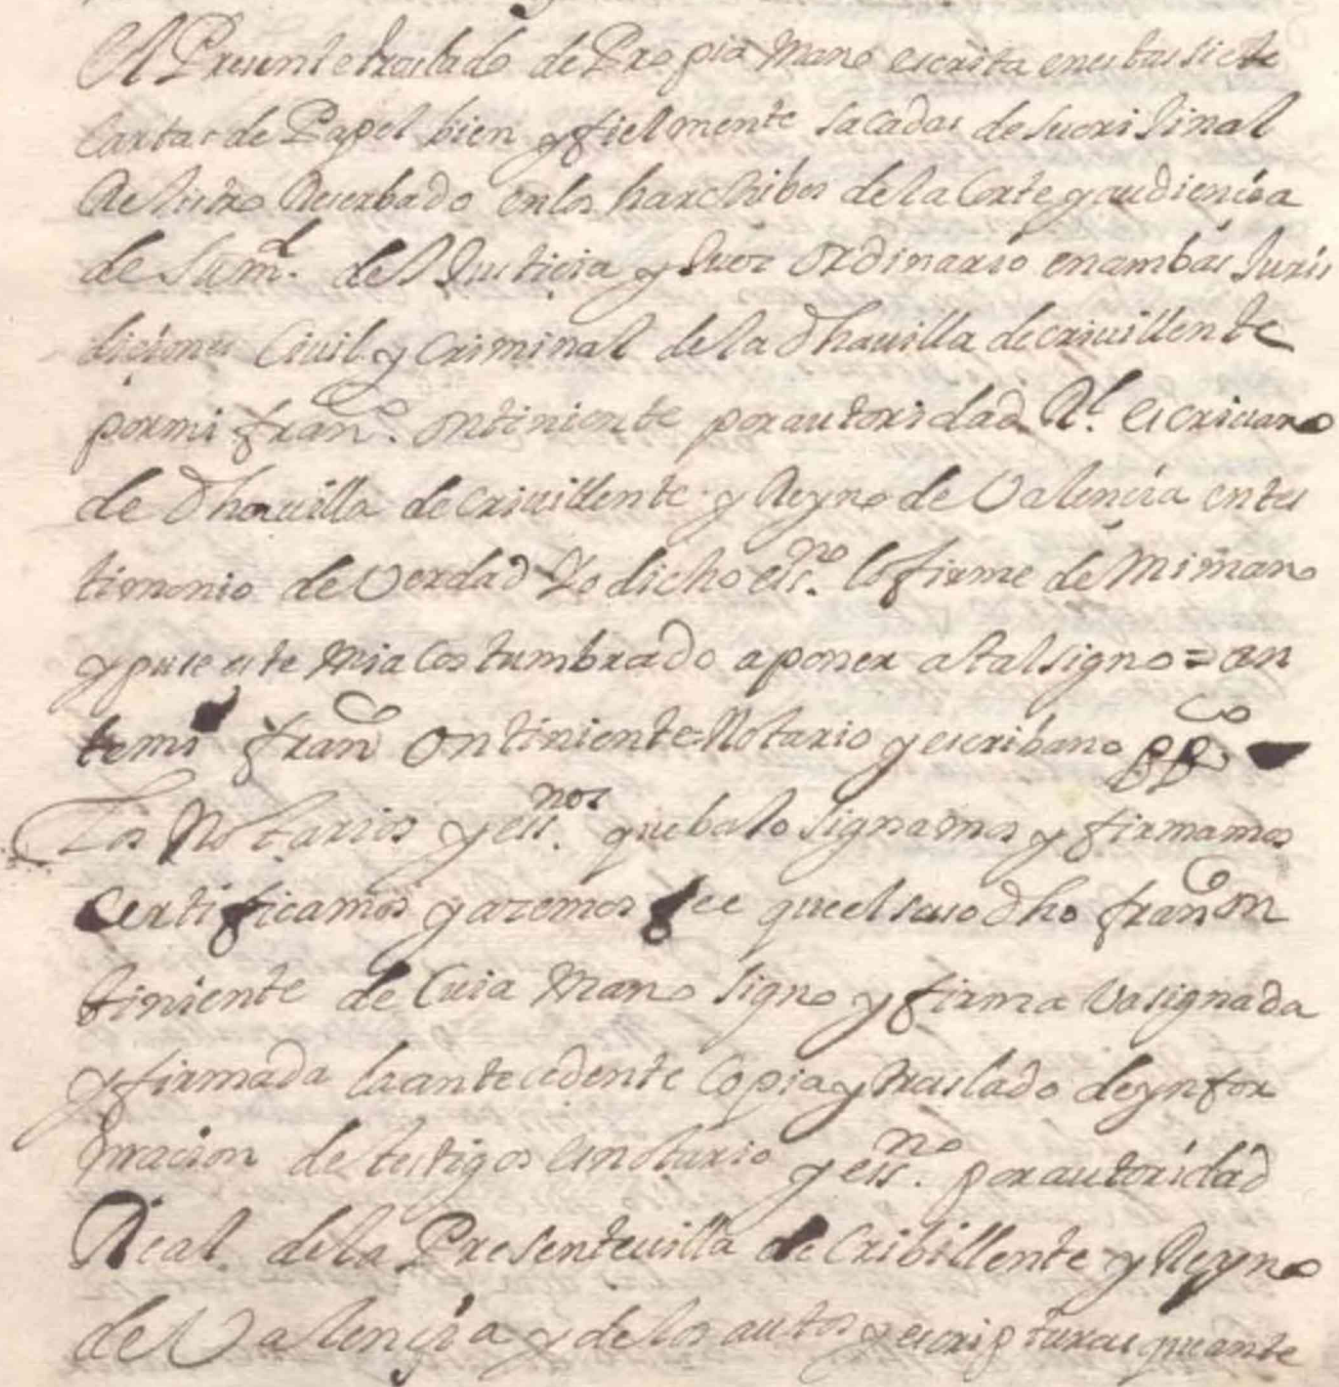 el Presente traslado de Propia Mano escrita en estas siete
Cartas de Papel bien y fielmente sacadas de su orijinal
Rejistro Reserbado en los harchibos de la Corte y audiencia
de su md. del Justicia y Juez ordinario en ambas Juris
diciones Civil y Criminal de la dha villa de crivillente
por mi franco. ontiniente por autoridad Rl. escrivano
de dha villa de crivillente y Reyno de Valencia en tes
timonio de Verdad Yo dicho essno. lo firme de Mi mano
y puse este Mi acostumbrado a poner atal signo = an
temi franco ontiniente Notario y escribano
Los Notarios y essnos. que bajo signamos y firmamos
Certificamos y azemos fee que el suso dho franco on
tiniente de Cuia Mano signo y firma Va signada
y firmada la antecedente Copia y traslado de ynfor
macion de testigos es notario y essno. por autoridad
Real de la Presente villa de Cribillente y Reyno
de Valençia y de los autos y escripturas que ante